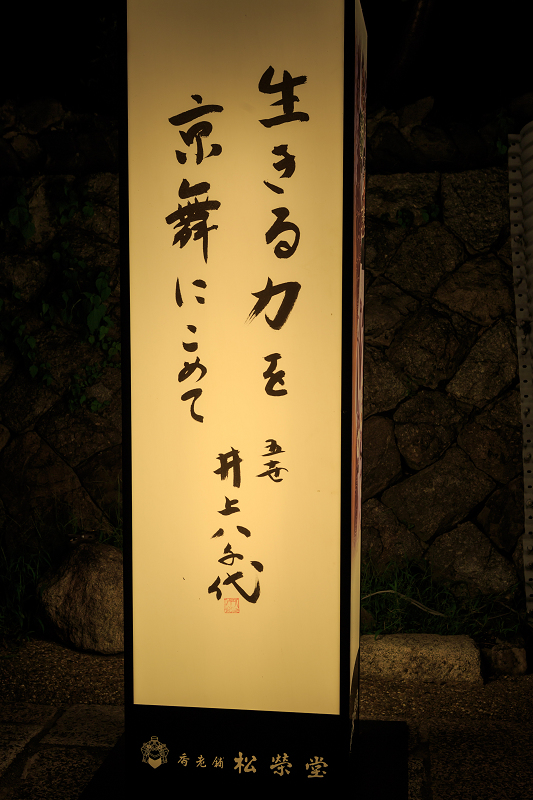 生きる力を
京舞にこめて
五世
井上八千代
香老舗 松榮堂